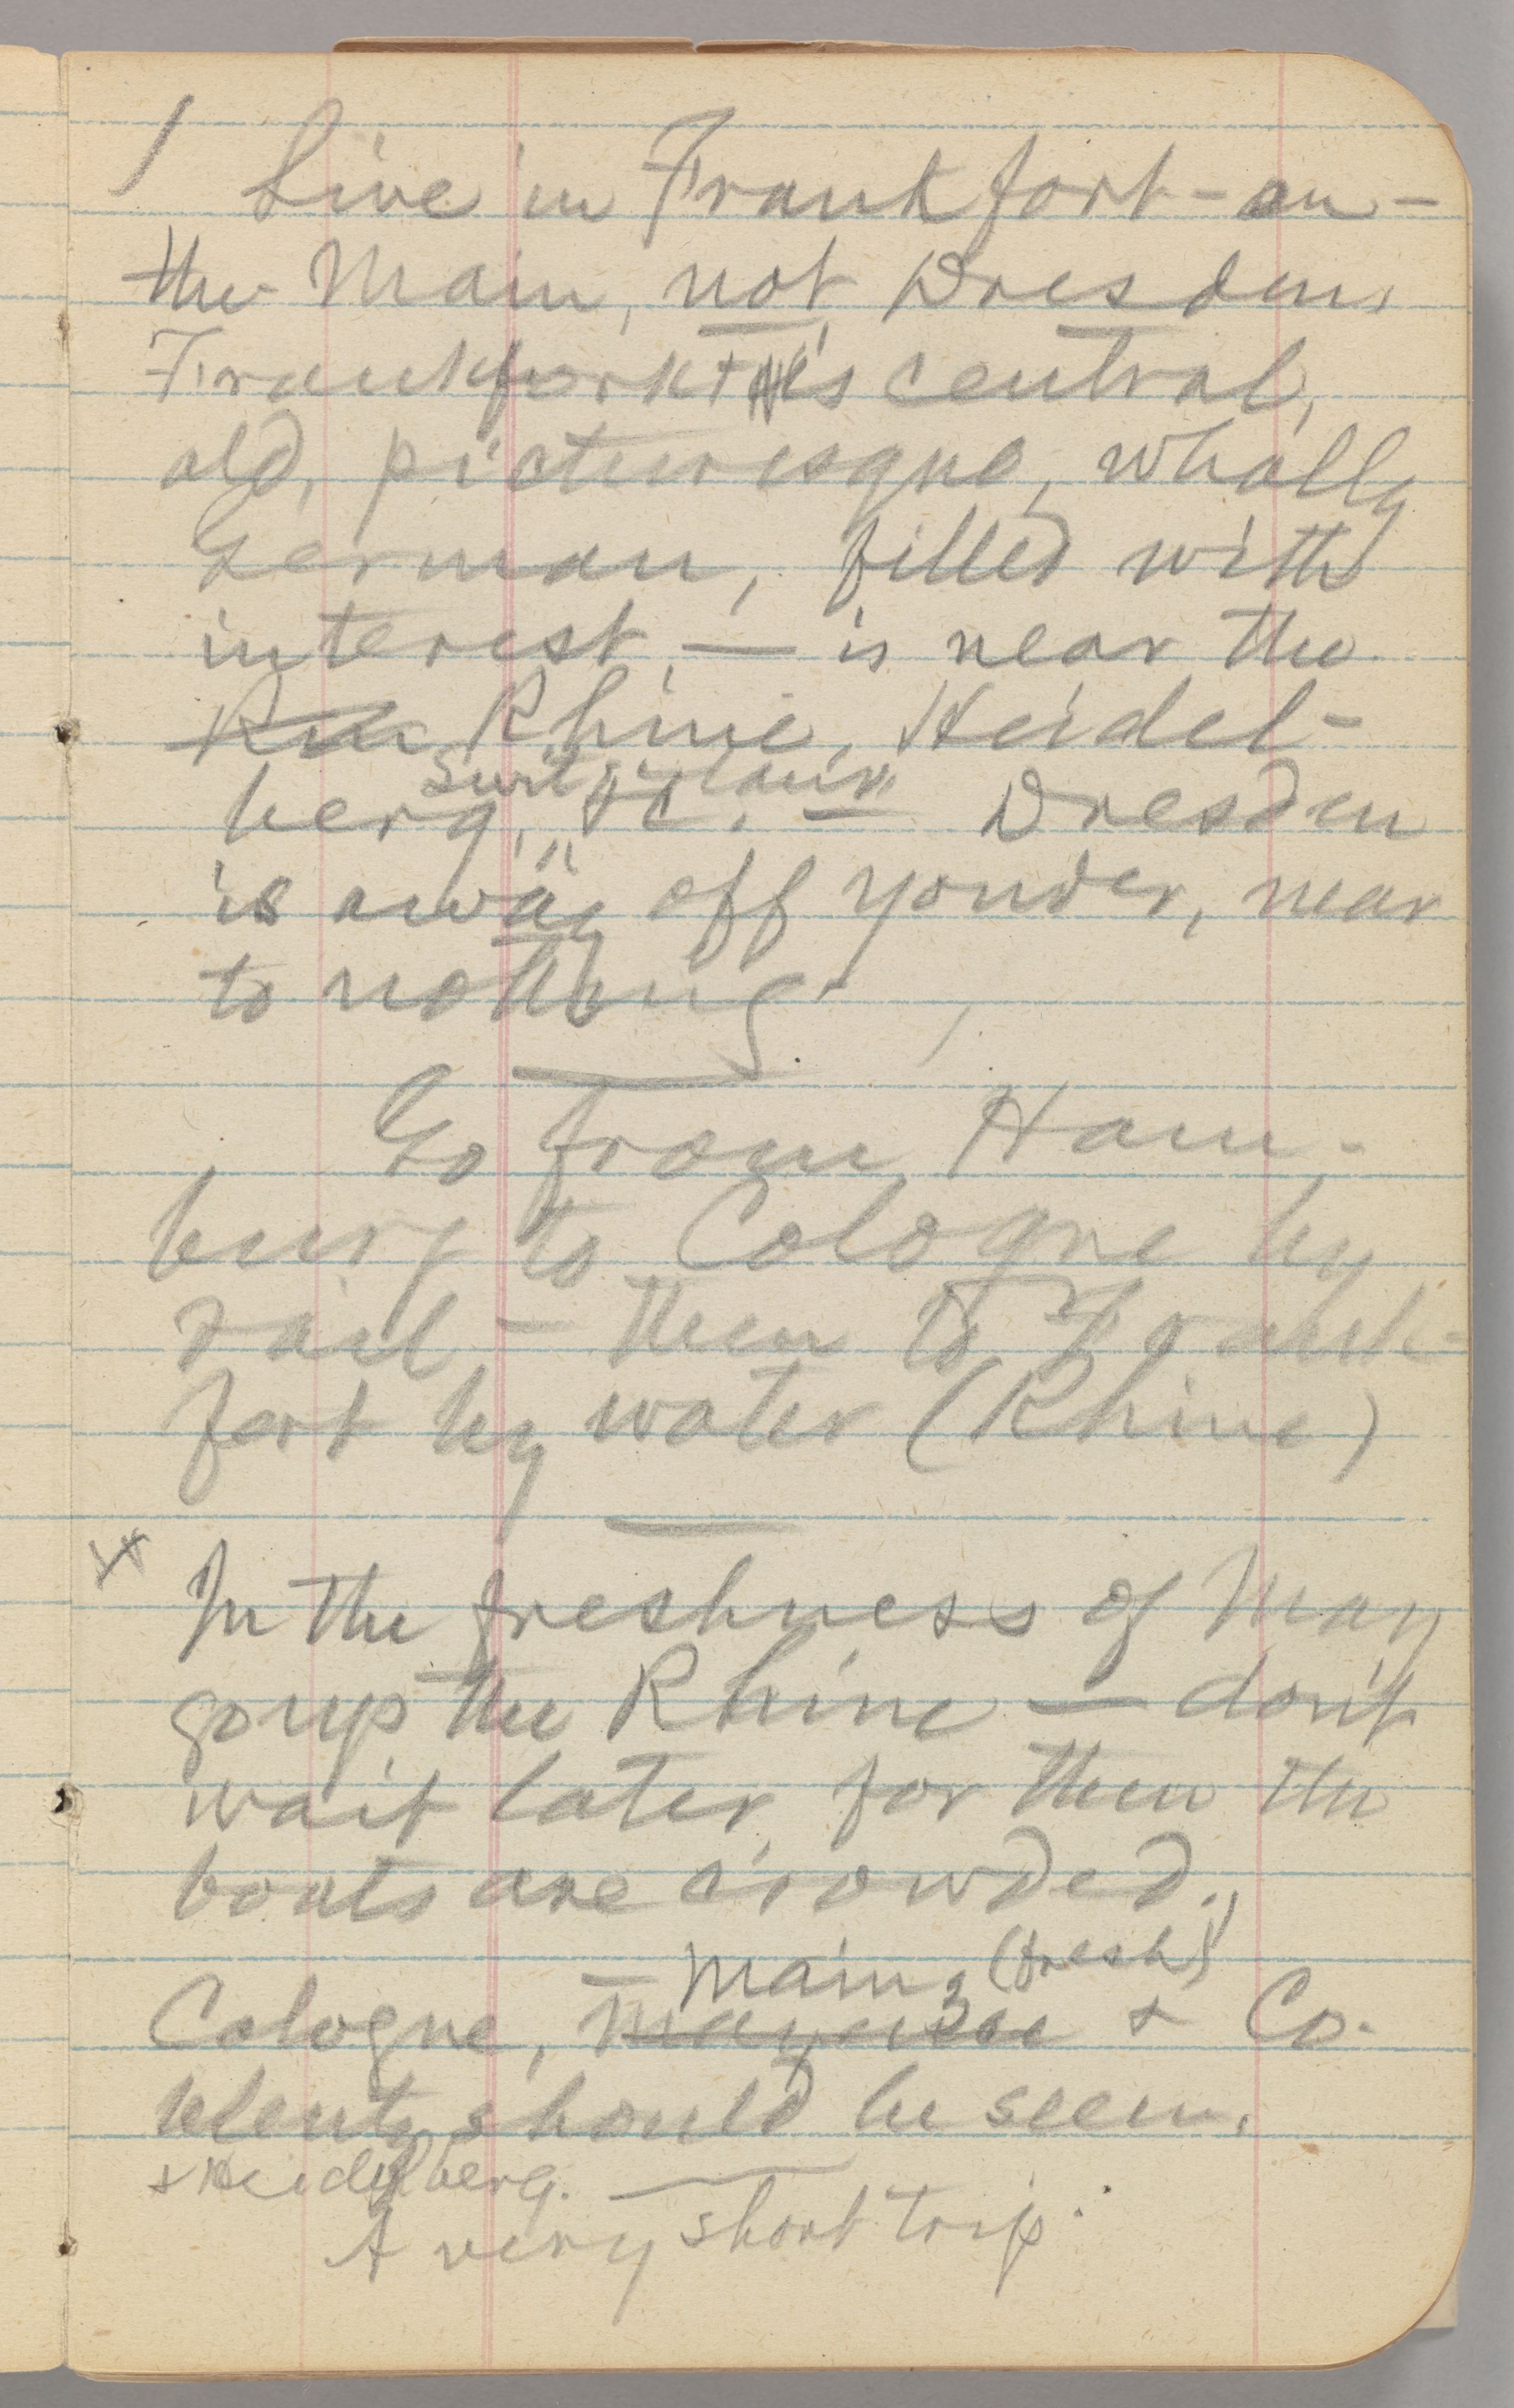 1 Live in Frankfort-on-
the Main, not Dresden.
Frankfort is central,
old, picturesque, wholly
German, filled with
interest — is near the
Rhine, Heidel-
berg, Switzerland, &c. — Dresden
is away off yonder, near
to nothing.
Go from Ham-
burg to Cologne by
rail — then to Frank-
fort by water (Rhine)
In the freshness of May
go up the Rhine — don't
wait later, for then the
boats are crowded.
Mainz (fresh)
Cologne, Mayence & Co-
blentz should be seen.
& Heidelberg.
A very short trip.